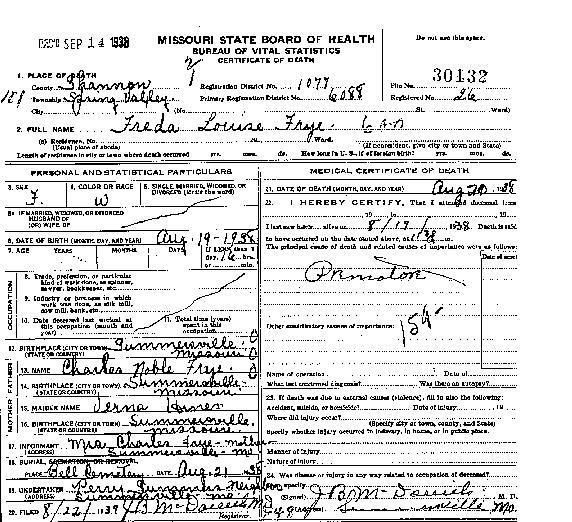 REC'D SEP 14 1938
MISSOURI STATE BOARD OF HEALTH
BUREAU OF VITAL STATISTICS
CERTIFICATE OF DEATH
Do not use this space.
1. PLACE OF DEATH
County Shannon Registration District No. 1077 File No. 30132
Township Spring Valley Primary Registration District No. 6088 Registered No. 26
City (No. St. Ward)
2. FULL NAME Freda Louise Frye
(a) Residence. No. St. Ward.
(Usual place of abode) (If nonresident, give city or town and State)
Length of residence in city or town where death occurred yrs. mos. ds. How long in U. S., if of foreign birth? yrs. mos. ds.
PERSONAL AND STATISTICAL PARTICULARS
3. SEX F. 4. COLOR OR RACE W 5. SINGLE, MARRIED, WIDOWED, OR DIVORCED (write the word)
5a. IF MARRIED, WIDOWED, OR DIVORCED
HUSBAND OF
(OR) WIFE OF
6. DATE OF BIRTH (MONTH, DAY, AND YEAR) Aug. 19-1938
7. AGE YEARS MONTHS DAYS If LESS than 1 day, 16 hrs. or min.
OCCUPATION
8. Trade, profession, or particular kind of work done, as spinner, sawyer, bookkeeper, etc.
9. Industry or business in which work was done, as silk mill, saw mill, bank, etc.
10. Date deceased last worked at this occupation (month and year)
11. Total time (years) spent in this occupation
12. BIRTHPLACE (CITY OR TOWN) Summersville
(STATE OR COUNTRY) Missouri
FATHER
13. NAME Charles Noble Frye
14. BIRTHPLACE (CITY OR TOWN) Summersville
(STATE OR COUNTRY) Missouri
MOTHER
15. MAIDEN NAME Verna
16. BIRTHPLACE (CITY OR TOWN) Summersville
(STATE OR COUNTRY) Missouri
17. INFORMANT Mrs. Charles Frye - mother
(ADDRESS) Summersville - mo
18. BURIAL, CREMATION, OR REMOVAL
PLACE Bell Cemetery DATE Aug-21 1938
19. UNDERTAKER Perry
(ADDRESS) Summersville mo
20. FILED 8/22/1938 J B McDaniels
Registrar
MEDICAL CERTIFICATE OF DEATH
21. DATE OF DEATH (MONTH, DAY, AND YEAR) Aug 20, 1938
22. I HEREBY CERTIFY, That I attended deceased from
19 to 19
I last saw h alive on 8/19/1938 Death is said
to have occurred on the date stated above, at m.
The principal cause of death and related causes of importance were as follows:
Date of onset
Other contributory causes of importance:
Name of operation Date of
What test confirmed diagnosis? Was there an autopsy?
23. If death was due to external causes (violence), fill in also the following:
Accident, suicide, or homicide? Date of injury 19
Where did injury occur?
(Specify city or town, county, and State)
Specify whether injury occurred in industry, in home, or in public place.
Manner of injury
Nature of injury
24. Was disease or injury in any way related to occupation of deceased?
If so, specify
(Signed) J B McDaniels M. D.
Summersville Mo.